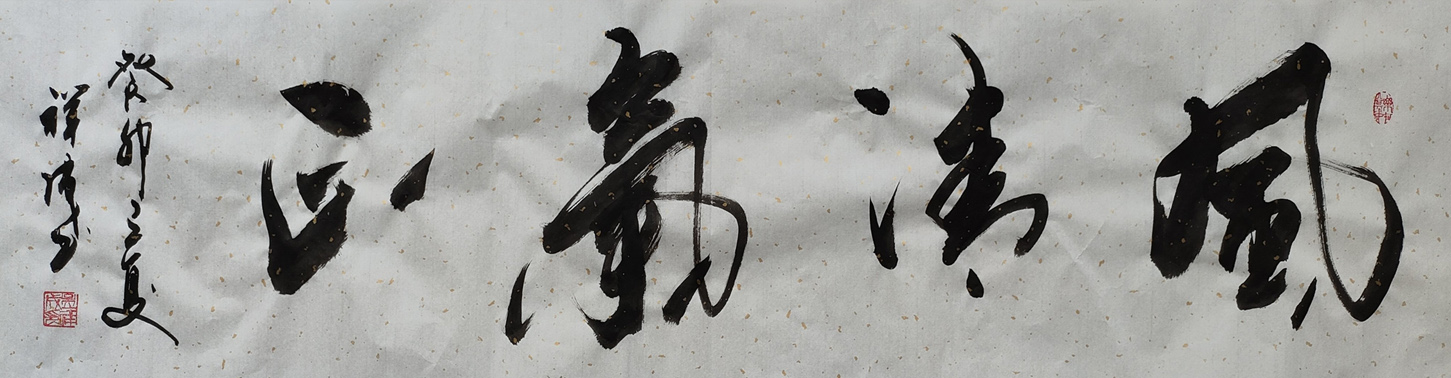 風清氣正
癸卯之夏
祥成书